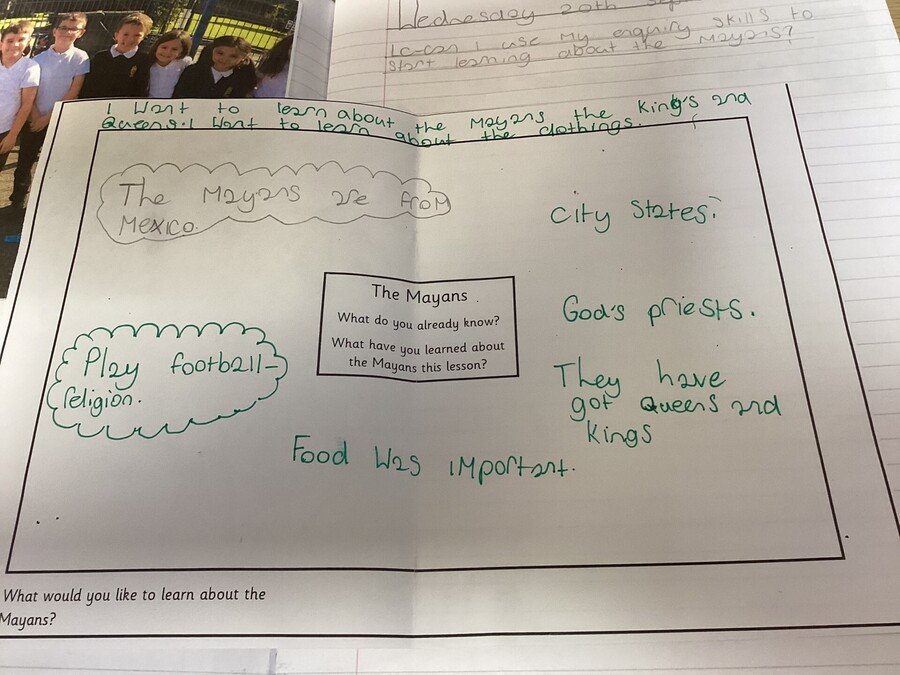 Wednesday 20th Sep
LC-can I use my enquiry skills to
start learning about the Mayans?
I Want to learn about the Mayans the King's and
Queens. I Want to learn about the clothings.
The Mayans are from
Mexico.
City states.
The Mayans
What do you already know?
What have you learned about
the Mayans this lesson?
God's priests.
Play football-
religion.
They have
got Queens and
kings
Food Was important.
What would you like to learn about the
Mayans?